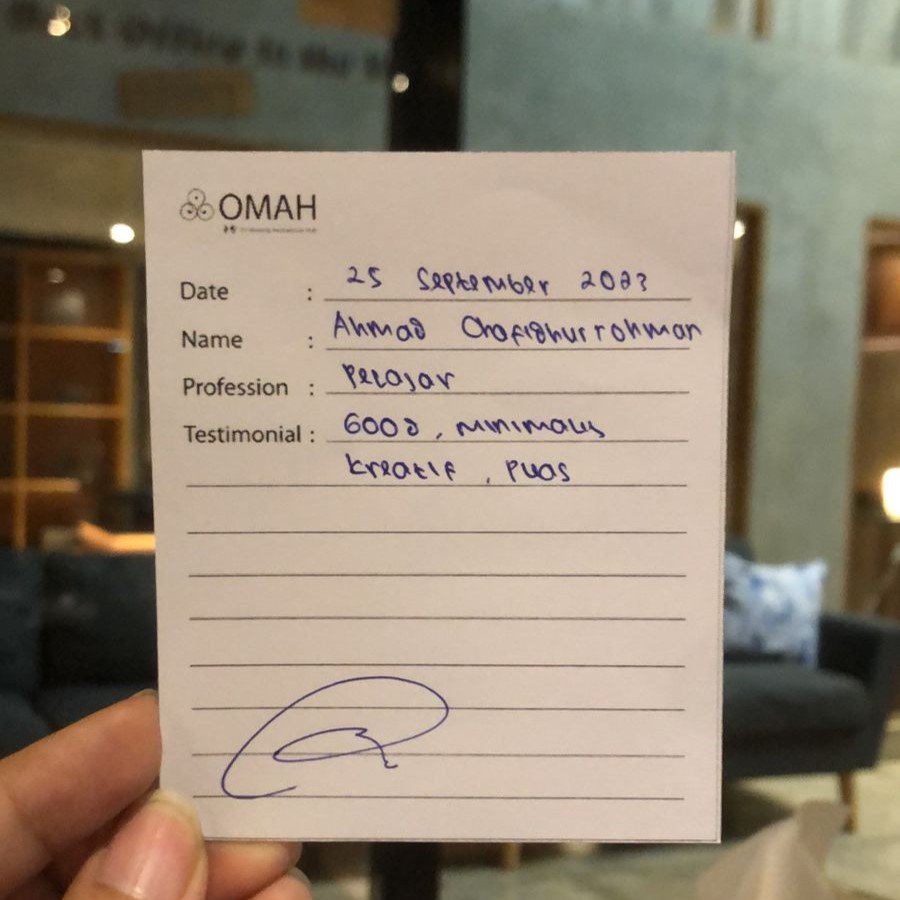 OMAH
Date : 25 September 2023
Name : Ahmad Chafidhurrohman
Profession : Pelajar
Testimonial : Good, minimalis
kreatif, puas